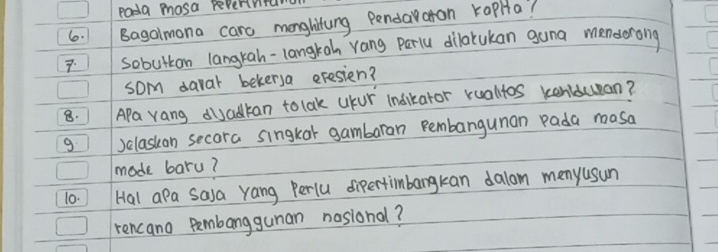 pada masa
6. Bagaimana cara menghitung Pendapatan kapita?
7. Sebutkan langkah-langkah yang perlu dilakukan guna mendorong
SDM dapat bekerja efesien?
8. Apa yang dijadikan tolak ukur indikator kualitas kehidupan?
9 Jelaskan secara singkat gambaran Pembangunan pada masa
mode baru?
10. Hal apa saja yang perlu dipertimbangkan dalam menyusun
rencana Pembanggunan nasional?